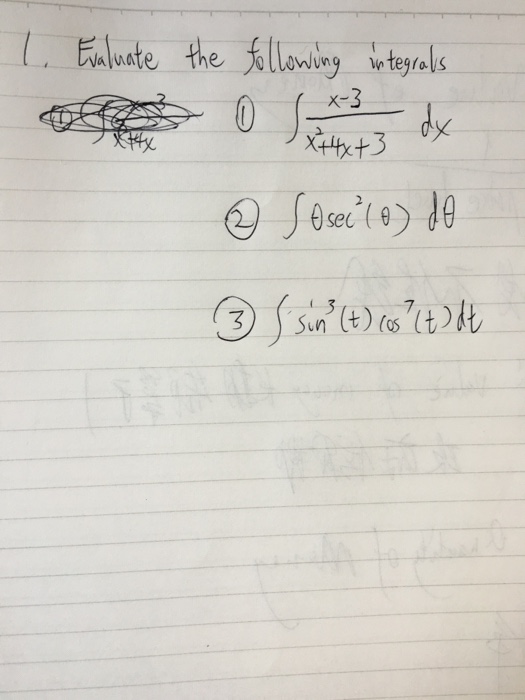 1. Evaluate the following integrals
① ∫ x-3 / x²+4x+3 dx
② ∫ θ sec²(θ) dθ
③ ∫ sin³(t) cos⁷(t) dt